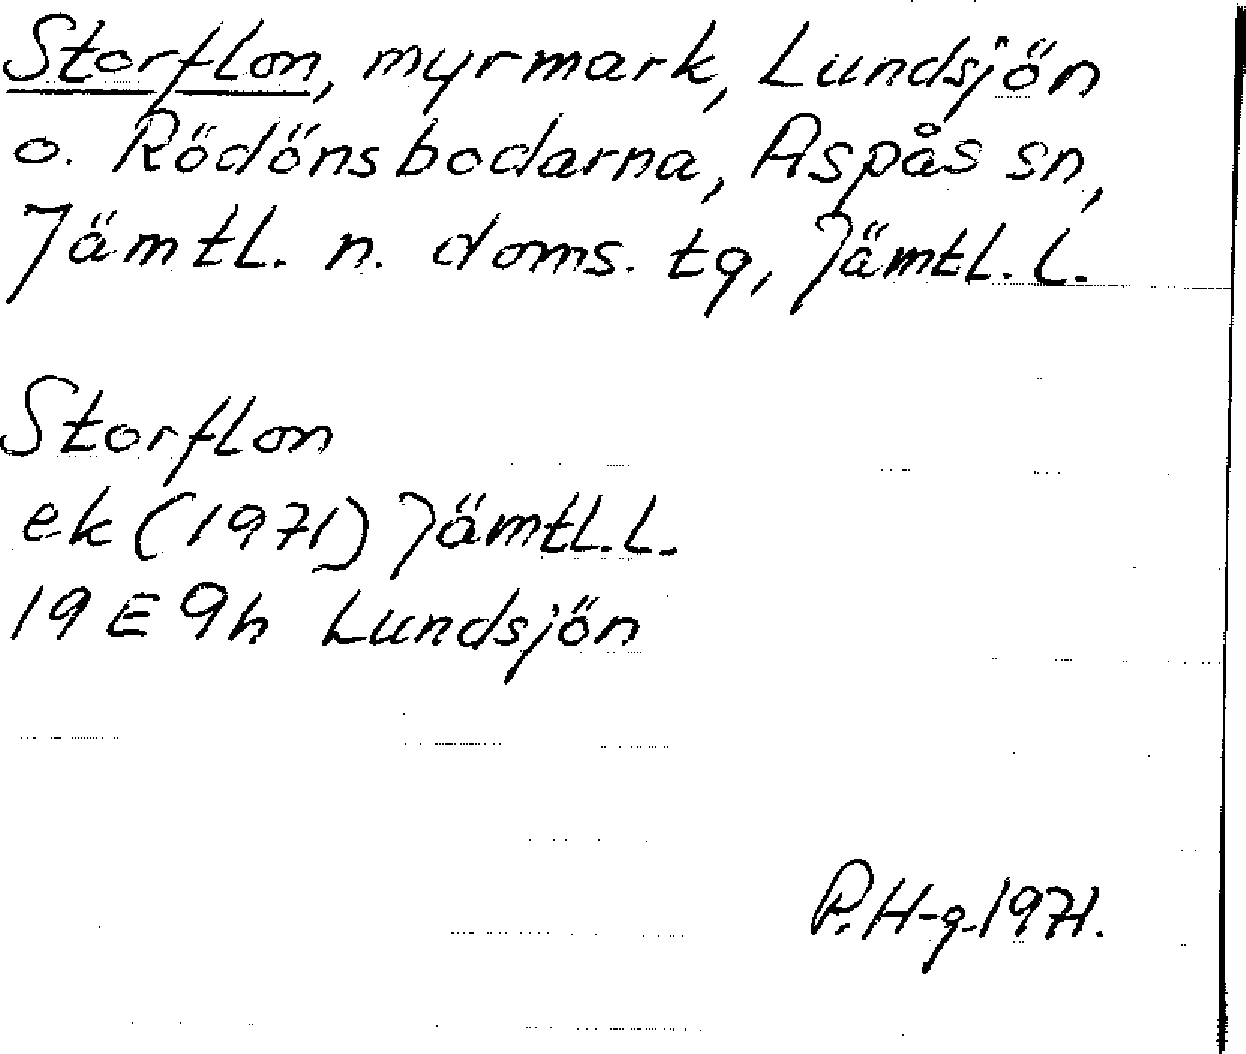 Storflon, myrmark, Lundsjön
o. Rödönsbodarna, Aspås sn,
Jämtl. n. doms. tg, Jämtl. l.
Storflon
ek (1971) Jämtl. l.
19 E 9h Lundsjön
P. H-g. 1971.